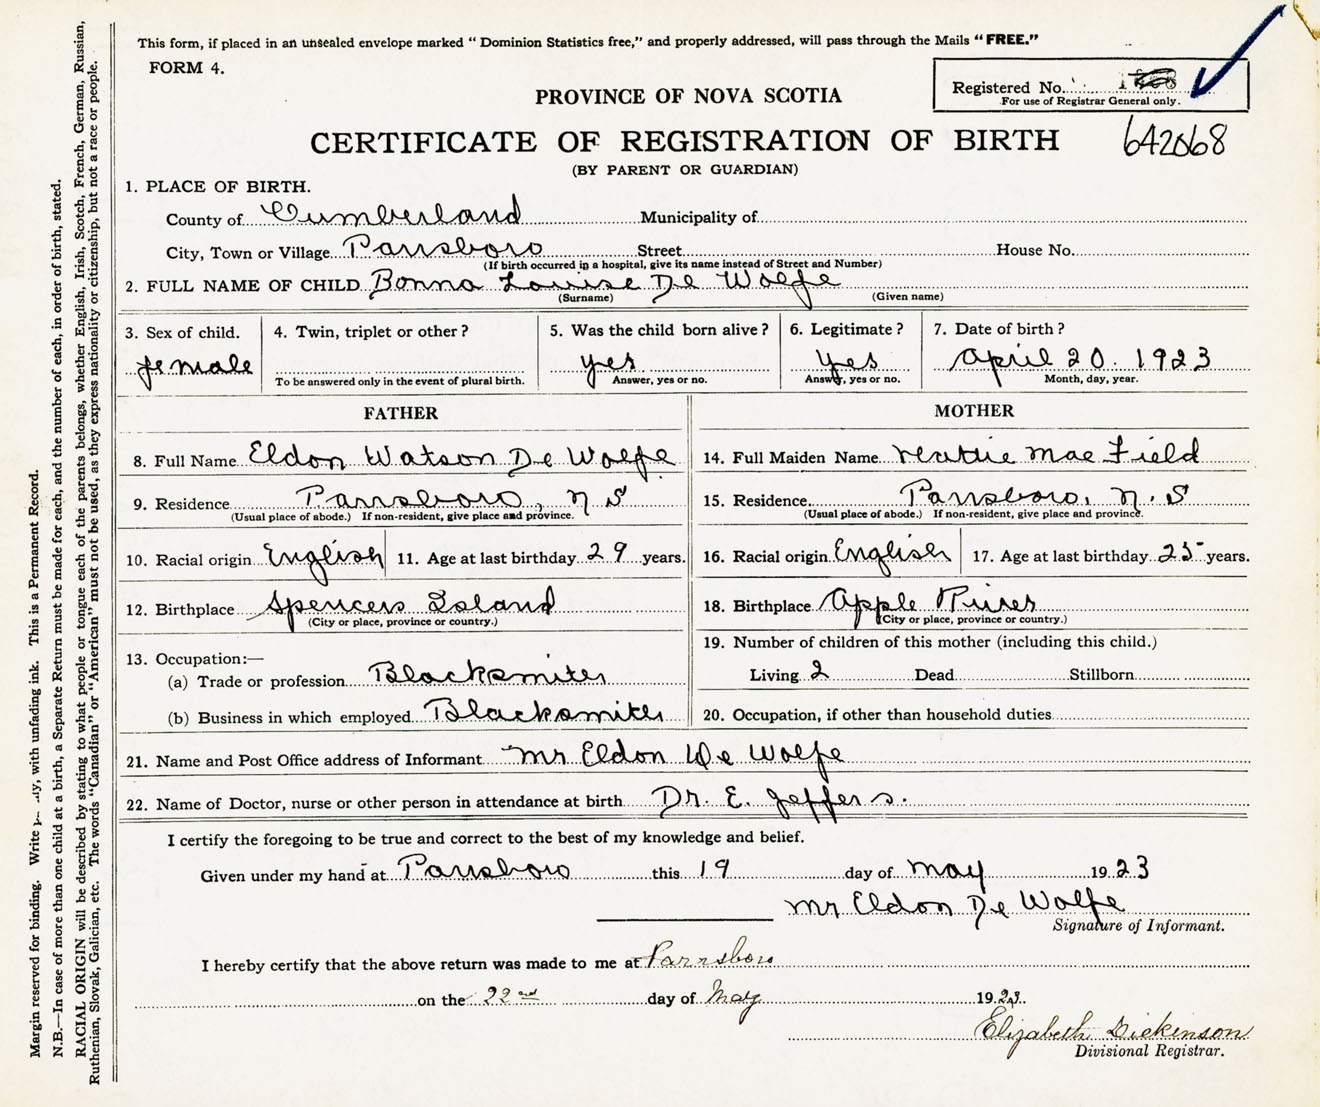 This form, if placed in an unsealed envelope marked "Dominion Statistics free," and properly addressed, will pass through the Mails "FREE."
FORM 4.
Registered No.
For use of Registrar General only.
PROVINCE OF NOVA SCOTIA
CERTIFICATE OF REGISTRATION OF BIRTH
642068
(BY PARENT OR GUARDIAN)
1. PLACE OF BIRTH.
County of Cumberland Municipality of
City, Town or Village Parrsboro Street House No.
(If birth occurred in a hospital, give its name instead of Street and Number)
2. FULL NAME OF CHILD Bonna Louise De Wolfe
(Surname) (Given name)
3. Sex of child. 4. Twin, triplet or other? 5. Was the child born alive? 6. Legitimate? 7. Date of birth?
female yes yes April 20. 1923
To be answered only in the event of plural birth. Answer, yes or no. Answer, yes or no. Month, day, year.
FATHER MOTHER
8. Full Name Eldon Watson De Wolfe 14. Full Maiden Name Hattie Mae Field
9. Residence Parrsboro, N S 15. Residence Parrsboro, N. S
(Usual place of abode.) If non-resident, give place and province. (Usual place of abode.) If non-resident, give place and province.
10. Racial origin English 11. Age at last birthday 29 years. 16. Racial origin English 17. Age at last birthday 25 years.
12. Birthplace Spencers Island 18. Birthplace Apple River
(City or place, province or country.) (City or place, province or country.)
13. Occupation:— 19. Number of children of this mother (including this child.)
(a) Trade or profession Blacksmiter Living 2 Dead Stillborn
(b) Business in which employed Blacksmiter 20. Occupation, if other than household duties
21. Name and Post Office address of Informant Mr Eldon De Wolfe
22. Name of Doctor, nurse or other person in attendance at birth Dr. E. Jeffers.
I certify the foregoing to be true and correct to the best of my knowledge and belief.
Given under my hand at Parrsboro this 19 day of May 1923
Mr Eldon De Wolfe
Signature of Informant.
I hereby certify that the above return was made to me at Parrsboro
on the 22nd day of May 1923.
Elizabeth Dickinson
Divisional Registrar.
Margin reserved for binding. Write with unfading ink. This is a Permanent Record.
N.B.—In case of more than one child at a birth, a Separate Return must be made for each, and the number of each, in order of birth, stated.
RACIAL ORIGIN will be described by stating to what people or tongue each of the parents belongs, whether English, Irish, Scotch, French, German, Russian,
Ruthenian, Slovak, Galician, etc. The words "Canadian" or "American" must not be used, as they express nationality or citizenship, but not a race or people.